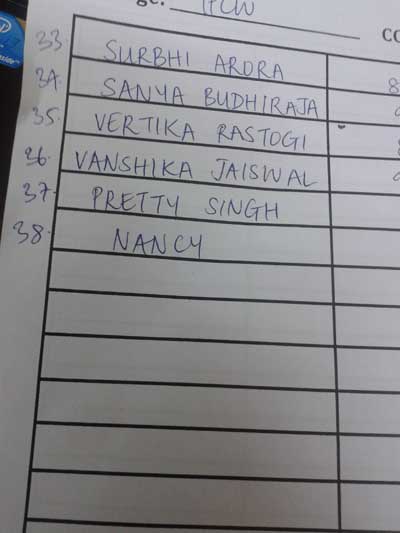 IPCW
33. SURBHI ARORA 8
34. SANYA BUDHIRAJA
35. VERTIKA RASTOGI
36. VANSHIKA JAISWAL
37. PRETTY SINGH
38. NANCY